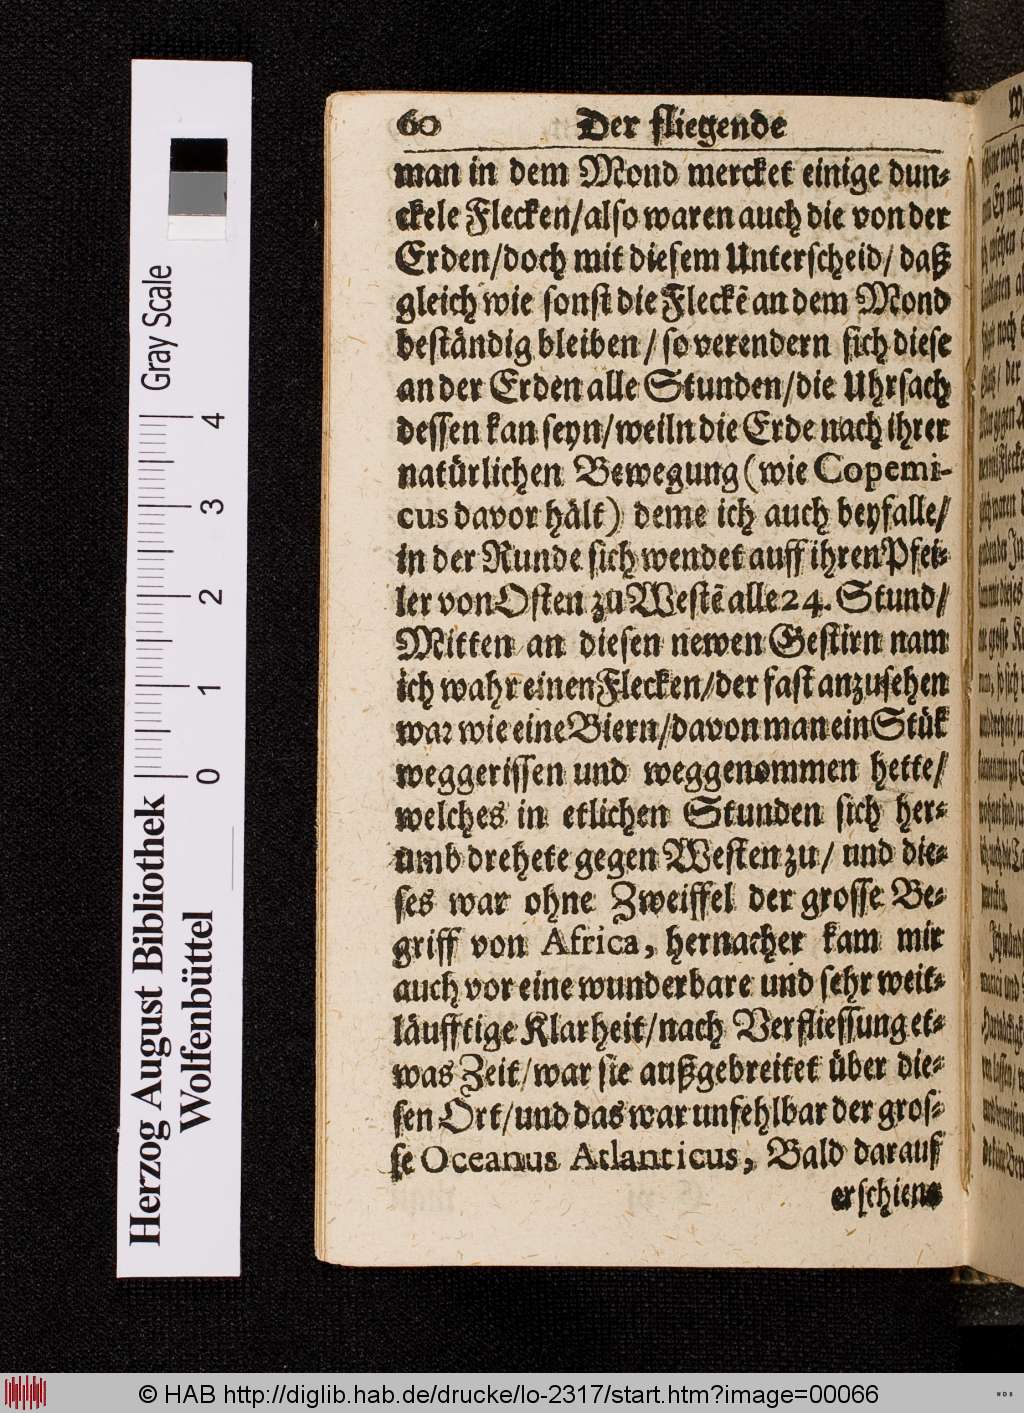 60 Der fliegende
man in dem Mond mercket einige dun⸗
ckele Flecken/also waren auch die von der
Erden/doch mit diesem Unterscheid/ daß
gleich wie sonst die Fleckẽ an dem Mond
beständig bleiben / so verendern sich diese
an der Erden alle Stunden/die Uhrsach
dessen kan seyn/weiln die Erde nach ihrer
natürlichen Bewegung (wie Copemi-
cus davor hält) deme ich auch beyfalle/
in der Runde sich wendet auff ihren Pfei⸗
ler von Osten zu Westẽ alle 24. Stund/
Mitten an diesen newen Gestirn nam
ich wahr einen Flecken/der fast anzusehen
war wie eine Biern/davon man ein Stük
weggerissen und weggenommen hette/
welches in etlichen Stunden sich her⸗
umb drehete gegen Westen zu/ und die⸗
ses war ohne Zweiffel der grosse Be⸗
griff von Africa, hernacher kam mir
auch vor eine wunderbare und sehr weit⸗
läufftige Klarheit/nach Verfliessung et⸗
was Zeit/war sie außgebreitet über die⸗
sen Ort/und das war unfehlbar der gros⸗
se Oceanus Atlanticus, Bald darauf
erschiene
Gray Scale
0 1 2 3 4
Herzog August Bibliothek
Wolfenbüttel
© HAB http://diglib.hab.de/drucke/lo-2317/start.htm?image=00066